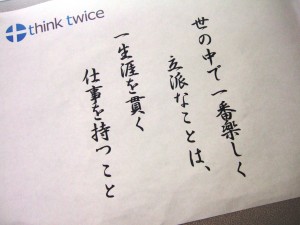 think twice
世の中で一番楽しく
立派なことは、
一生涯を貫く
仕事を持つこと